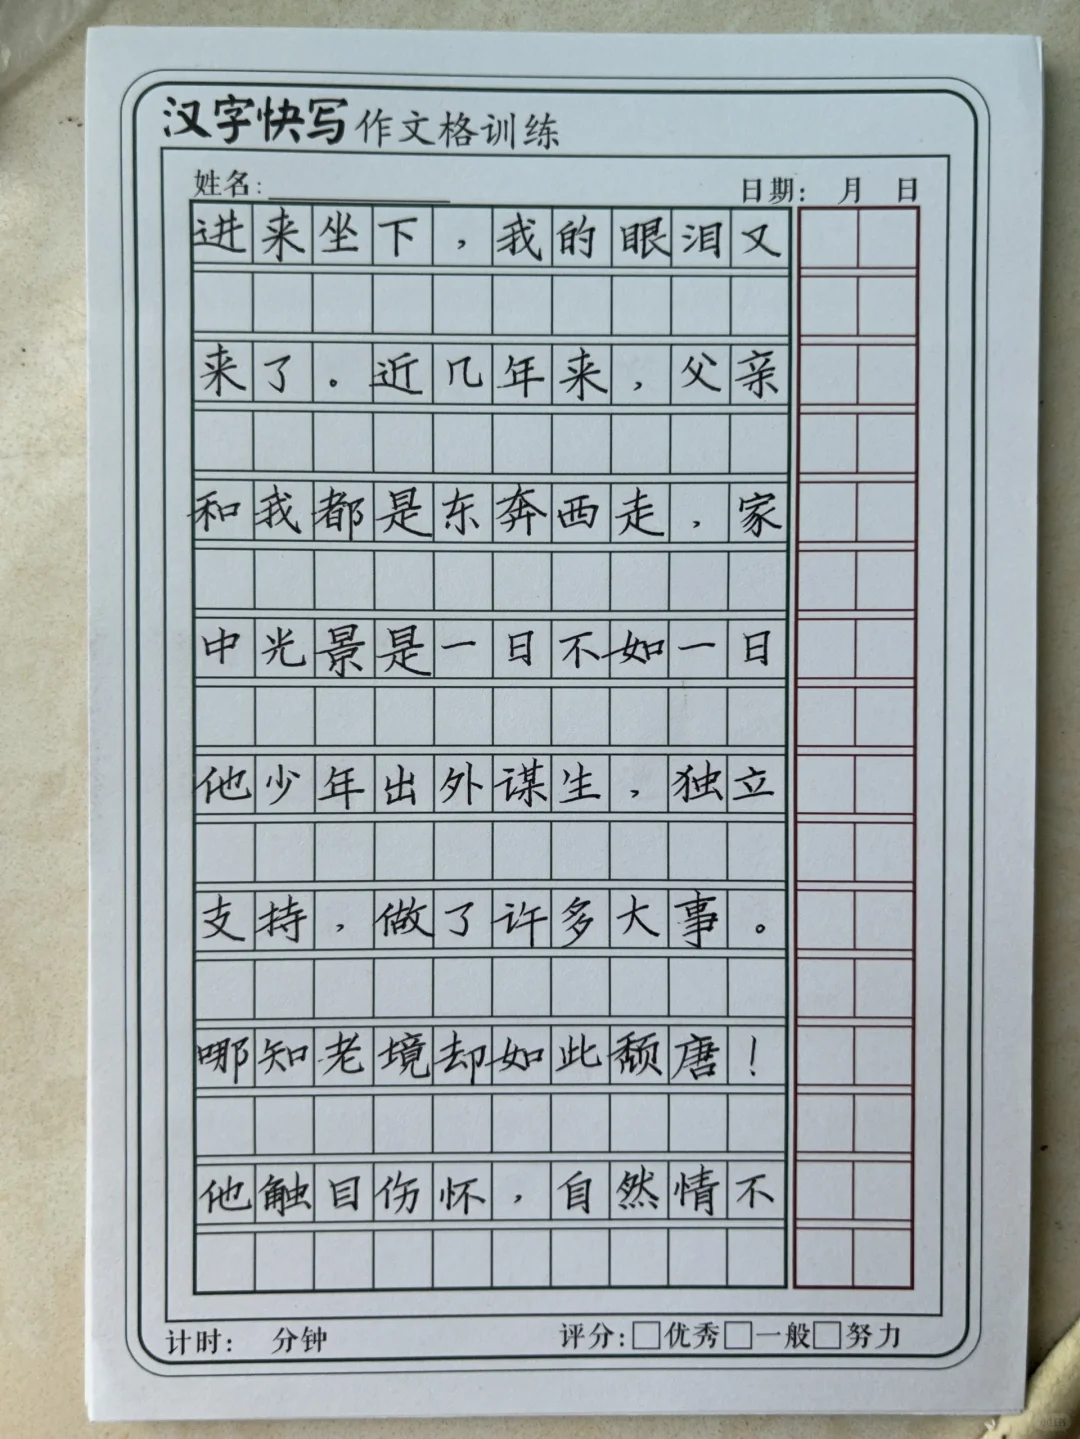 汉字快写作文格训练
姓名: 日期: 月 日
进来坐下，我的眼泪又
来了。近几年来，父亲
和我都是东奔西走，家
中光景是一日不如一日
他少年出外谋生，独立
支持，做了许多大事。
哪知老境却如此颓唐！
他触目伤怀，自然情不
计时: 分钟 评分:□优秀□一般□努力